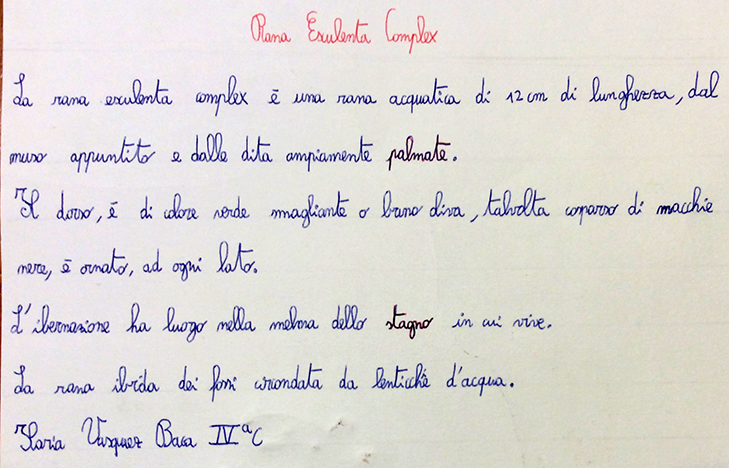 Rana Exulenta Complex
La rana exulenta complex è una rana acquatica di 12 cm di lunghezza, dal
muso appuntito e dalle dita ampiamente palmate.
Il dorso, è di colore verde smagliante o bruno oliva, talvolta cosparso di macchie
nere, è ornato, ad ogni lato.
L'ibernazione ha luogo nella melma dello stagno in cui vive.
La rana ibrida dei fossi circondata da lenticchie d'acqua.
Ilaria Vasquez Baca IVªC